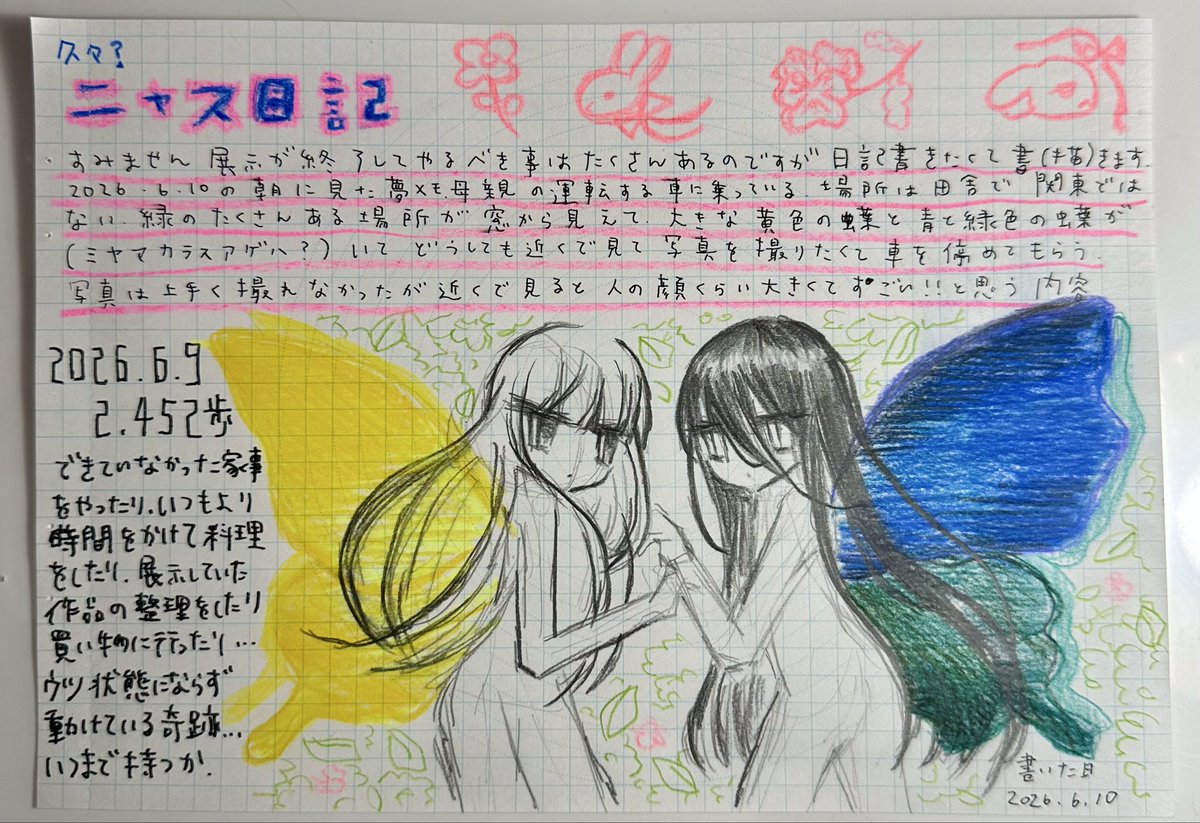 久々?
ニャス日記
すみません 展示が終了してやるべき事はたくさんあるのですが 日記書きたくて書(描)きます.
2026.6.10の朝に見た夢メモ母親の運転する車に乗っている. 場所は田舎で関東では
ない. 緑のたくさんある場所が窓から見えて. 大きな黄色の蝶と青と緑色の蝶が
(ミヤマカラスアゲハ?) いて どうしても近くで見て 写真を撮りたくて 車を停めてもらう.
写真は上手く撮れなかったが近くで見ると 人の顔くらい大きくてすごい!!と思う 内容
2026.6.9
2.452歩
できていなかった家事
をやったり.いつもより
時間をかけて料理
をしたり.展示していた
作品の整理をしたり
買い物に行ったり...
ウツ状態にならず
動けている奇跡...
いつまで持つか.
書いた日
2026.6.10